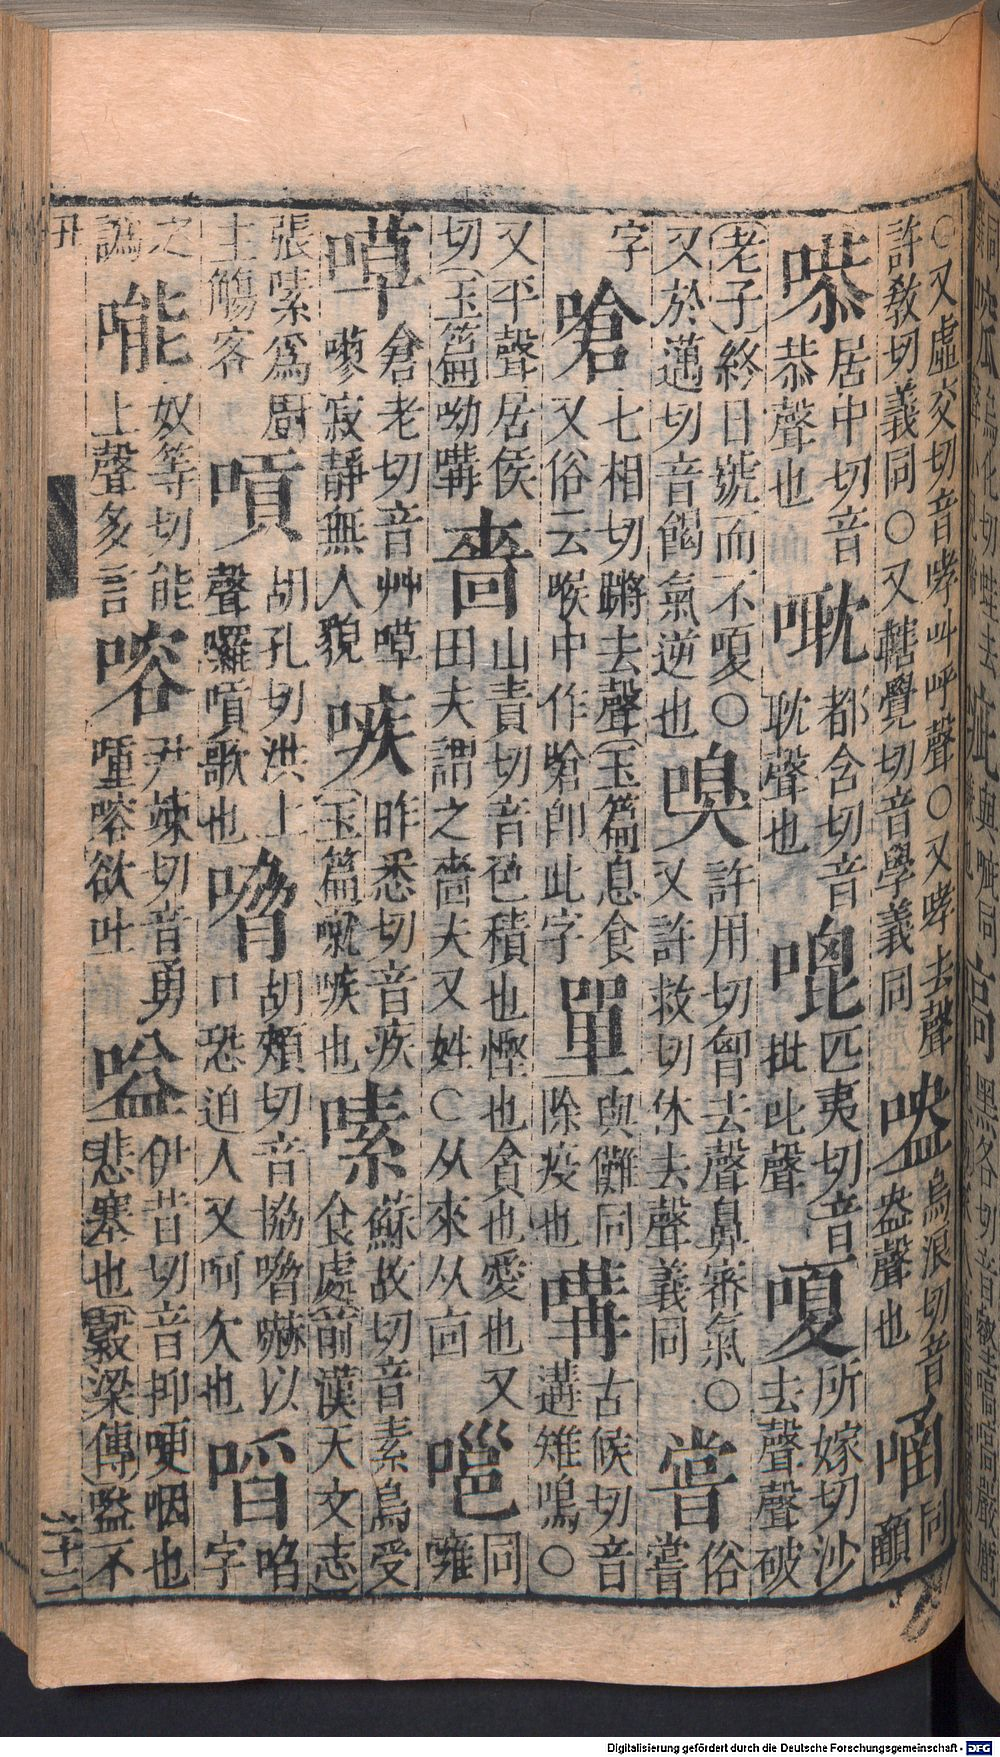 ○又虛交切音哮叫呼聲○又哮去聲許教切義同○又轄覺切音學義同 㗐 烏浪切音盎聲也 同
居中切音恭聲也 都含切音耽聲也 匹夷切音批 聲 嗄 所嫁切沙去聲聲破
(老子)終日號而不嗄○又於邁切音餲氣逆也 嗅 許用切胷去聲鼻審氣○又許救切休去聲義同 甞 俗嘗
字 嗆 七相切蹡去聲(玉篇)息食又俗云喉中作嗆卽此字 單 與儺同除疫也 㗕 古候切音遘雉鳴○
又平聲居侯切(玉篇)呦㗕 嗇 山責切音色積也慳也貪也愛也又田夫謂之嗇夫又姓○从來从㐭 嗈 同噰
倉老切音艸 寂靜無人貌 昨悉切音疾(玉篇) 也 嗉 蘇故切音素鳥受食處(前漢天文志)
張嗉爲廚主觴客 嗊 胡孔切洪上聲囉嗊歌也 嗋 胡頰切音協嗋嚇以口恐迫人又呵欠也 㗖 啗字
之譌 奴等切能上聲多言 嗠 尹竦切音勇 欲吐 嗌 伊昔切音抑哽咽也悲塞也(穀梁傳)嗌不
Digitalisierung gefördert durch die Deutsche Forschungsgemeinschaft - DFG